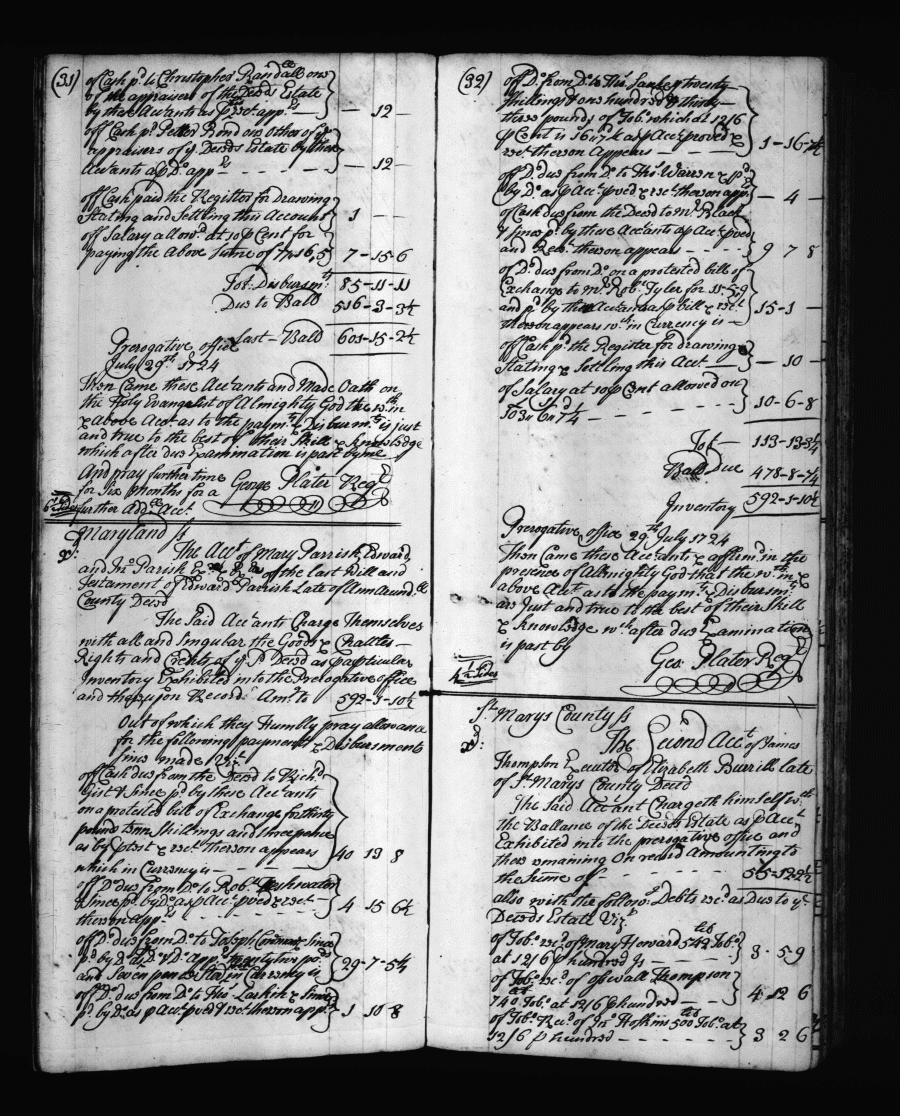 (31)
of Cash pd. to Christopher Randall one
of the appraisers of the Decds Estate
by these Accotants as p rect. appes. — — 12 —
off Cash pd. Petter Bond one other of ye
appraisers of ye Decds Estate by these
Accotants as p Do. appes. - - - - - — 12 —
off Cash paid the Register for Drawing
Stating and Settling this Account 1 — —
off Salary allowd. at 10 p Cent for
paying the Above Sume of 77.16,5 7-15-6
Tot. Disbursmts. 85-11-11
Due to Ball 516-3-3½
Last Ball 601-15-2½
Prerogative office
July 29th 1724
Then Came these Acctants and Made Oath on
the Holy Evangelist of Almighty God the wthin
& above Acct. as to the paymts. & Disbursmts. is just
and true to the best of their Skill & Knowledge
which after due Examination is past by me
And pray further time George Plater Regr.
for Six Months for a
further Addl. Acct.
6 Sides
Maryland ss
The Acct. of Mary Parrish, Edward
and Jno. Parish Exrs. of the last Will and
Testament of Edward Parrish Late of Ann Arundll
County Decd
The Said Acctants Charge Themselves
with all and Singular the Goods & Chattles
Rights and Credits of ye Sd. Decd as p particular
Inventory Exhibited into the Prerogative office
and thereupon Record. Amo. to 592-1-10½
Out of which they Humbly pray allowance
for the following payments & Disbursments
Since made Vizt.
off Cash due from the Decd to Richd.
Gist & Since pd. by these Acctants
on a protested bill of Exchange for thirty
pound tenn Shillings and three pence
as by ptest & rect. thereon appears 40 13 8
which in Currency is —
off Do. due from Do. to Robt. Freshwater
& Since pd. by Do. as p Acct. pved & rect. 4 15 6½
thereon Appes. - - - - -
off Do. due from Do. to Joseph Since
pd. by Do. as p Do. & Do. appes. twenty two pods.
and Seven pence Ster. in Currency is 29-7-5¼
off Do. due from Do. to Tho. Larkin & Since
pd. by Do. as p Acct. pved & rect. thereon appes. 1 10 8
(32)
off Do. from Do. to Tho. Lankep twenty
Shillings & one hundred & thirty
three pounds of Tobo. which at 12/6
p Cent is 16/7½ as p Acct. proved &
rect. thereon Appears — 1-16-7½
off Do. due from Do. to Tho. Warren & pd.
by Do. as p Acct. pved & rect. thereon appes. — 4 —
of Cash due from the Decd to Mr. Black
& since pd. by these Acctants as p Acct. pved
and Rect. thereon appears - - - - 9 7 8
of Do. due from Do. on a protested bill of
Exchange to Mr. Robt. Tyler for 11-5,9
and pd. by these Acctants as p bill & rect. 15-1 —
thereon appears wch. in Currency is —
off Cash pd. the Register for drawing
Stating & Settling this Acct. — 10 —
of Salary at 10 p Cent allowed on
103 " 6 " 7¼ — - - - - - 10-6-8
Tot — 113-13-3¼
Ball Due 478-8-7¼
Inventory 592-1-10½
Prerogative office 29th July 1724
Then Came these Acctants & affirmd. in the
presence of Almighty God that the wthin &
above Acct. as to the paymts. & Disbursmts.
are Just and true to the best of their Skill
& Knowledge wch. after due Examination
is past by
Geo Plater Regr.
4½ Sides
St. Marys County ss
The Second Acct. of James
Thompson Executr. of Elizabeth Burrill late
of St. Marys County Decd
The Said Acctant Chargeth himself wth
the Ballance of the Decds Estate as p Acct.
Exhibited into the prerogative office and
there remaining on record Amounting to
the Sume of - - - - - - 545-13-2½
also with the follow: Debts recd. as Due to ye
Decds Estate Vizt.
of Tobo. recd. of Mary Howard 542 Tobo.
at 12/6 p hundred is — — — 3-5 9
of Tobo. recd. of Oswall Thompson
740 Tobo. at 12/6 p hundred — — 4 12 6
of Tobo. Recd. of Jno. Hoskins 500 Tobo. at
12/6 p hundred — - - - - - 3 2 6